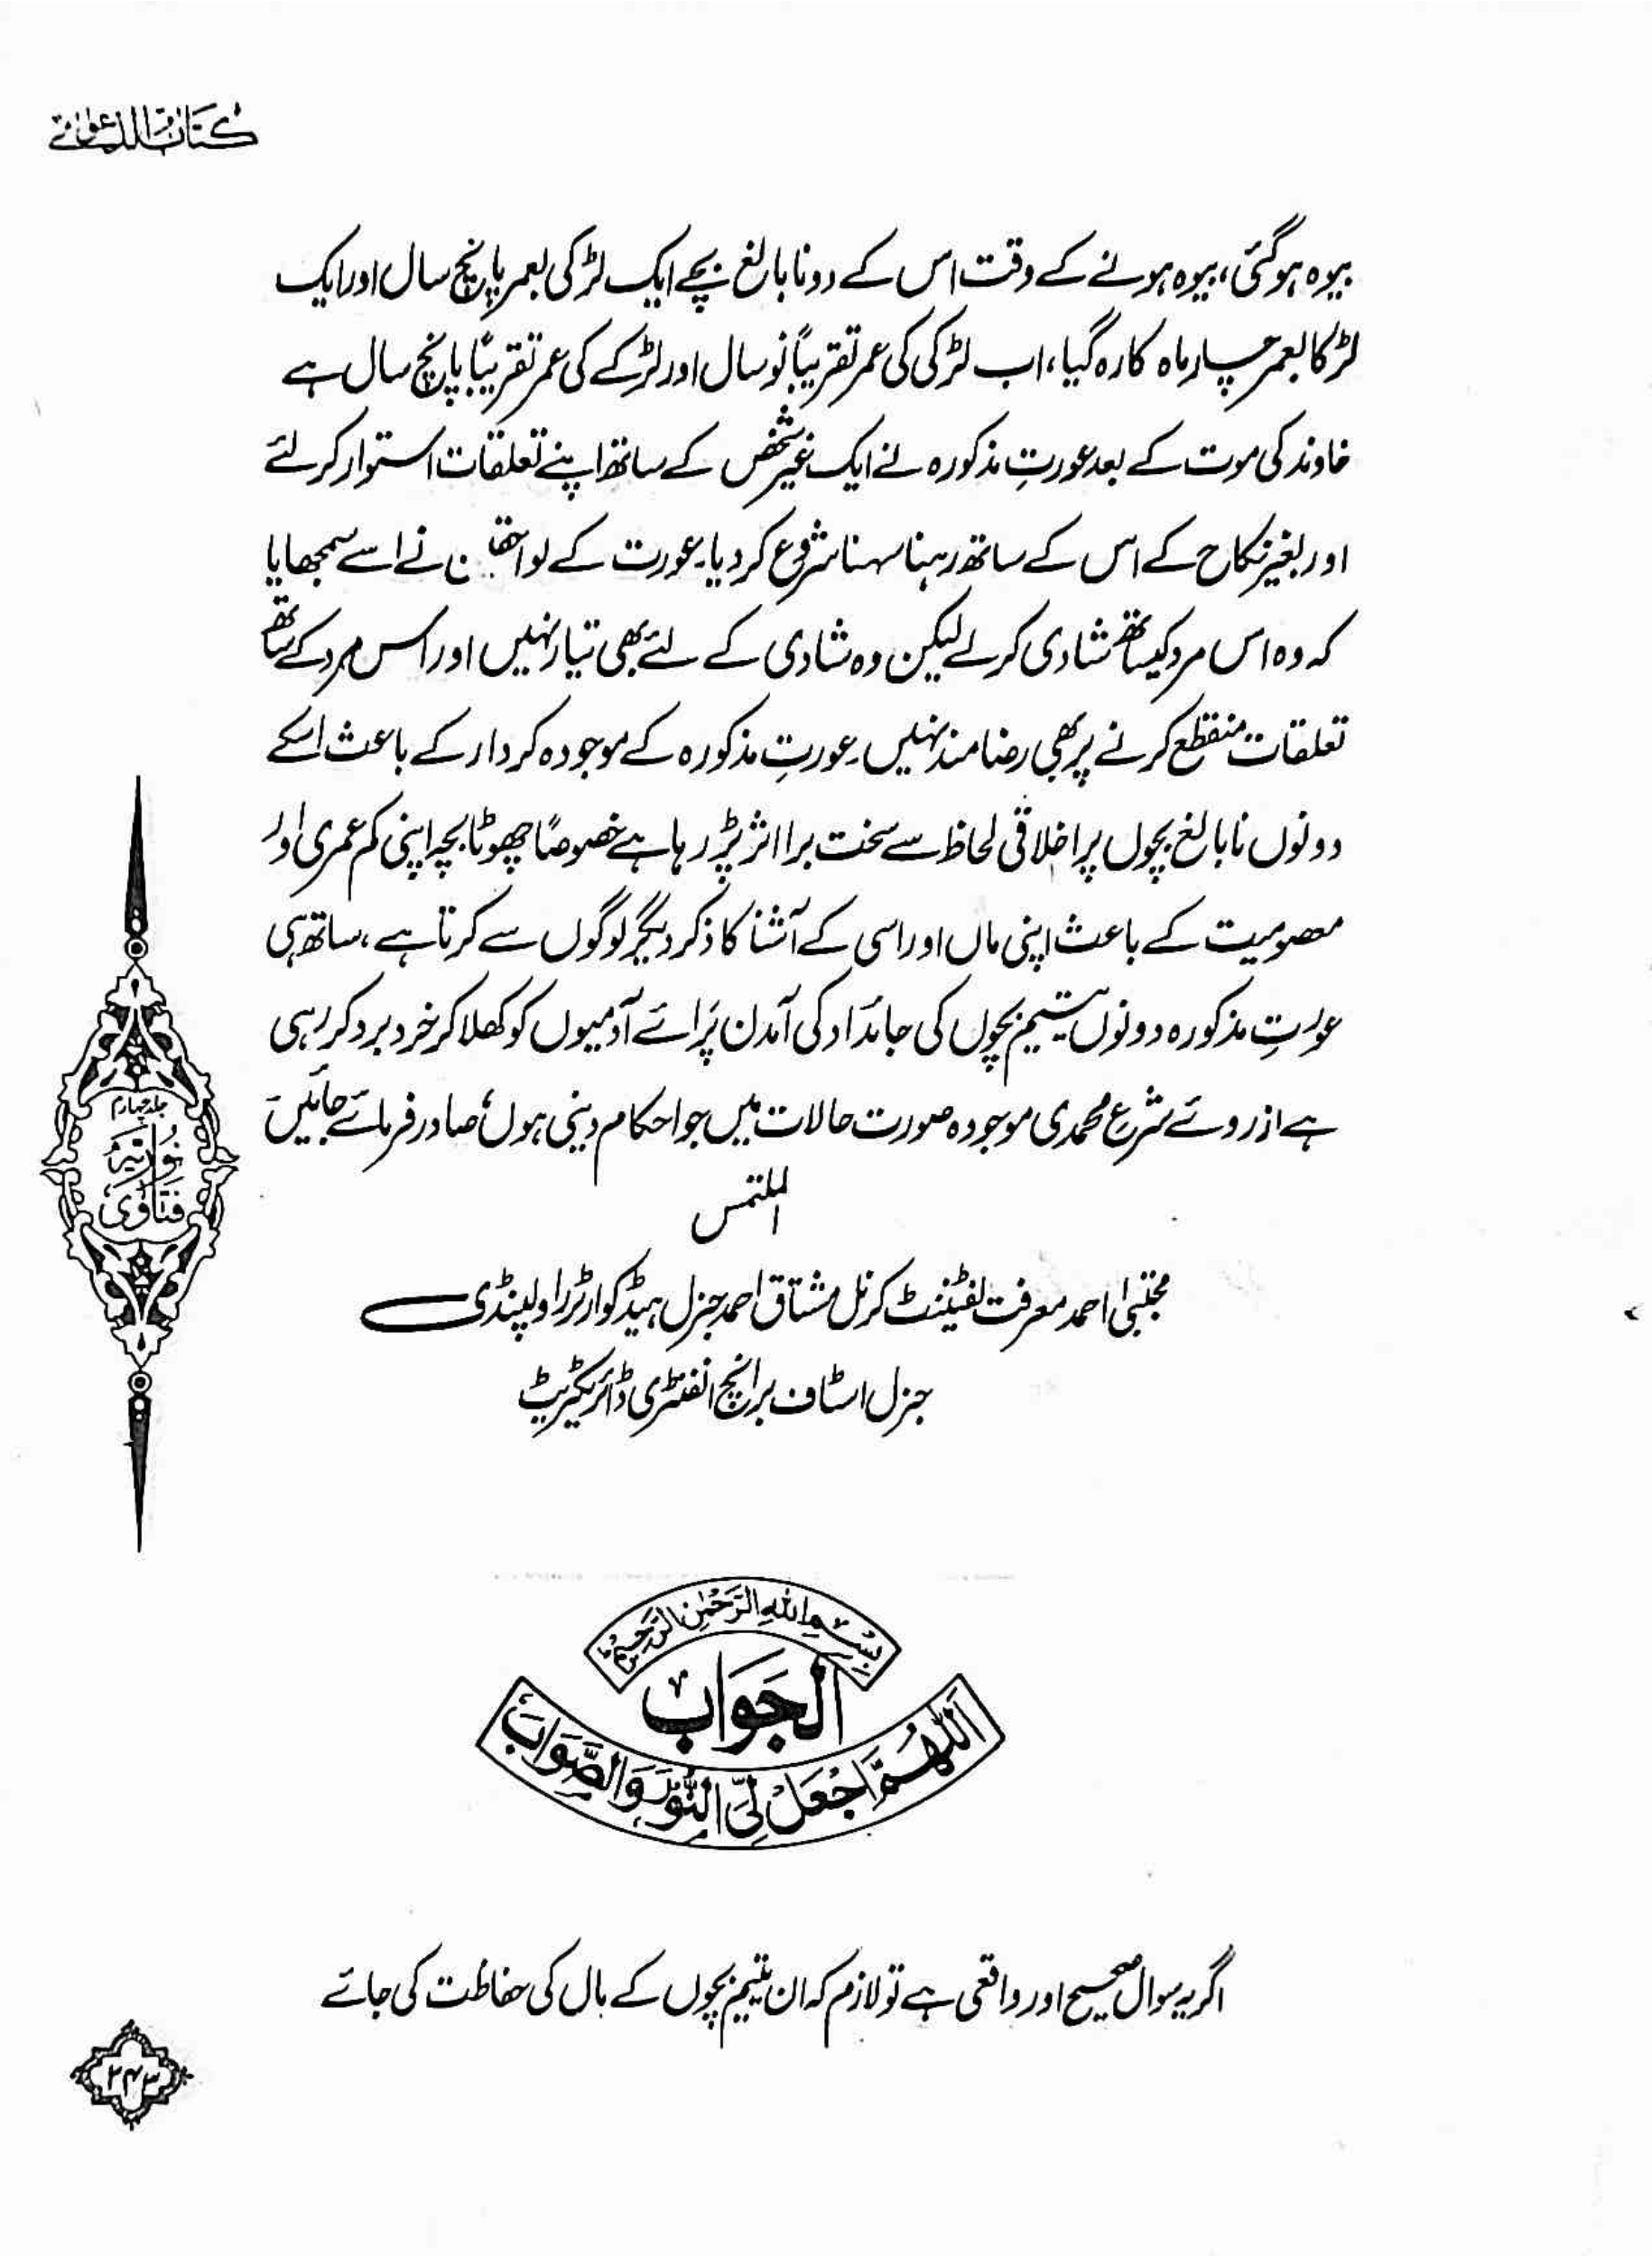 کتاب الدعوٰی
بیوہ ہوگئی، بیوہ ہونے کے وقت اس کے دو نابالغ بچے ایک لڑکی بعمر پانچ سال اور ایک
لڑکا بعمر چار ماہ کا رہ گیا، اب لڑکی کی عمر تقریباً نو سال اور لڑکے کی عمر تقریباً پانچ سال ہے
خاوند کی موت کے بعد عورتِ مذکورہ نے ایک غیر شخص کے ساتھ اپنے تعلقات استوار کر لئے
اور بغیر نکاح کے اس کے ساتھ رہنا سہنا شروع کر دیا۔ عورت کے لواحقین نے اسے سمجھایا
کہ وہ اس مرد کیساتھ شادی کرلے لیکن وہ شادی کے لئے بھی تیار نہیں اور اس مرد کے ساتھ
تعلقات منقطع کرنے پر بھی رضامند نہیں۔ عورتِ مذکورہ کے موجودہ کردار کے باعث اسکے
دونوں نابالغ بچوں پر اخلاقی لحاظ سے سخت برا اثر پڑ رہا ہے خصوصًا چھوٹا بچہ اپنی کم عمری اور
معصومیت کے باعث اپنی ماں اور اسی کے آشنا کا ذکر دیگر لوگوں سے کرتا ہے، ساتھ ہی
عورتِ مذکورہ دونوں یتیم بچوں کی جائداد کی آمدن پَرائے آدمیوں کو کھلا کر خرد برد کر رہی
ہے ازروئے شرعِ محمدی موجودہ صورت حالات میں جو احکام دینی ہوں، صادر فرمائے جائیں۔
الملتمس
مجتبیٰ احمد معرفت لفٹیننٹ کرنل مشتاق احمد جنرل ہیڈکوارٹرز راولپنڈی
جنرل اسٹاف برانچ انفنٹری ڈائریکٹریٹ
جلد چہارم
نُوریَّہ
فتاوٰی
بِسْمِ اللهِ الرَّحْمٰنِ الرَّحِیْمِ
اَلجَوَابُ
اَللّٰهُمَّ اجْعَلْ لِیَ النُّوْرَ وَالصَّوَابَ
اگر یہ سوال صحیح اور واقعی ہے تو لازم کہ ان یتیم بچوں کے مال کی حفاظت کی جائے
۲۴۳